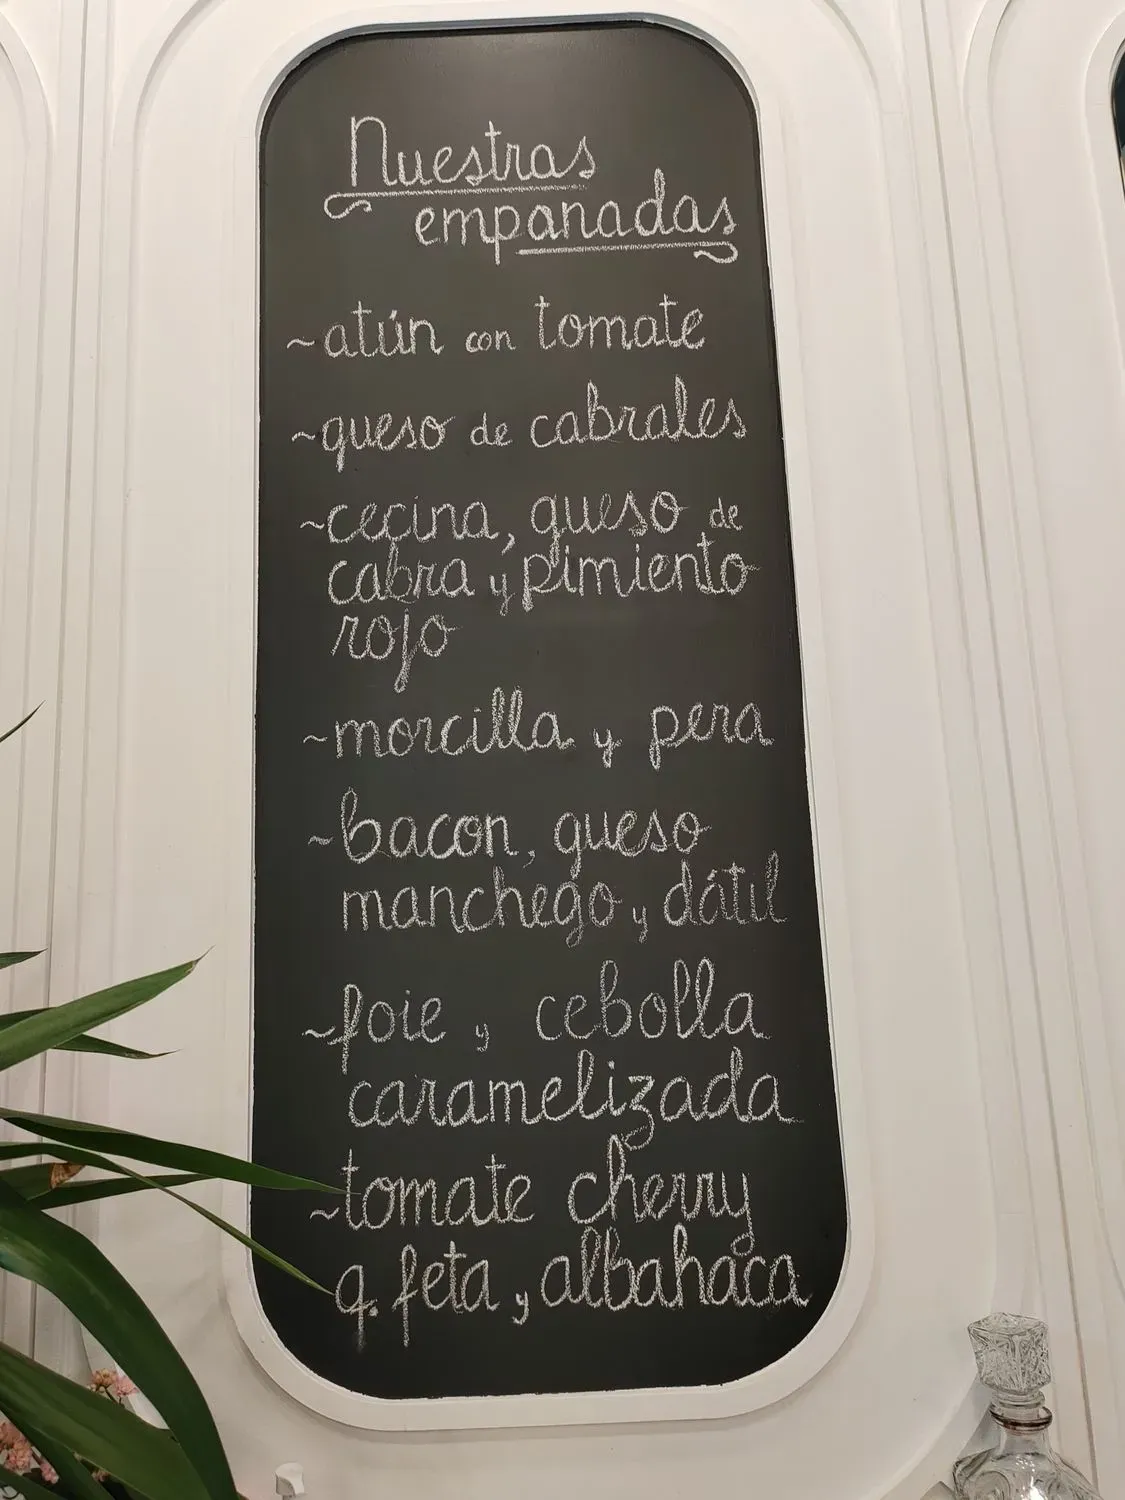 Nuestras
empanadas
~atún con tomate
~queso de cabrales
~cecina, queso de
cabra y pimiento
rojo
~morcilla y pera
~bacon, queso
manchego y dátil
~foie y cebolla
caramelizada
~tomate cherry
q. feta y albahaca